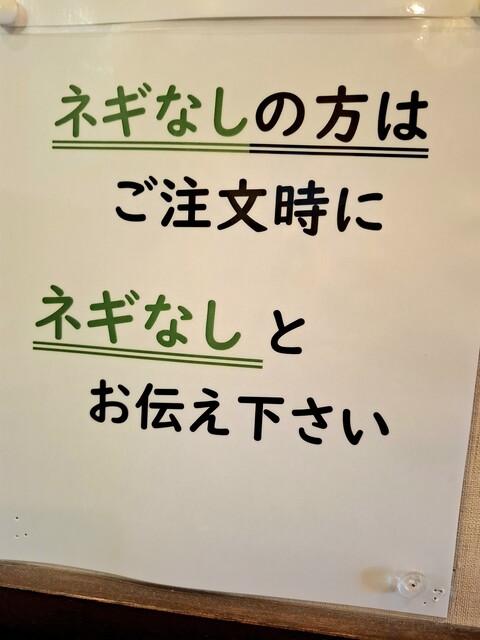 ネギなしの方は
ご注文時に
ネギなしと
お伝え下さい